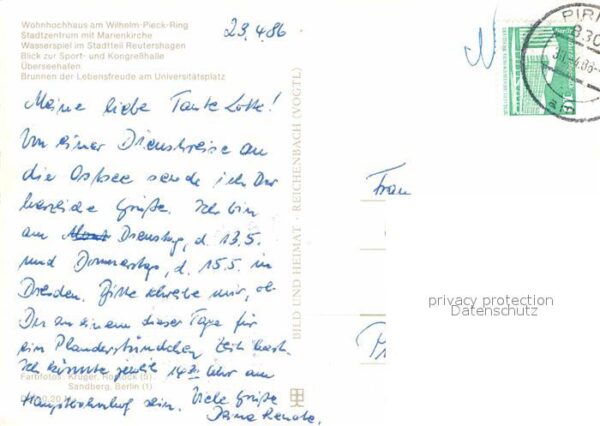 Wohnhochhaus am Wilhelm-Pieck-Ring
Stadtzentrum mit Marienkirche
Wasserspiel im Stadtteil Reutershagen
Blick zur Sport- und Kongreßhalle
Überseehafen
Brunnen der Lebensfreude am Universitätsplatz
23.4.86
Meine liebe Tante Lotte!
Von einer Dienstreise an
die Ostsee sende ich Dir
herzliche Grüße. Ich bin
am Dienstag, d. 13.5.
und Donnerstag, d. 15.5. in
Dresden. Bitte schreibe mir, ob
Du an einem dieser Tage für
ein Plauderstündchen Zeit hast.
Ich könnte jeweils 14 Uhr am
Hauptbahnhof sein. Viele Grüße
Deine Renate.
Farbfotos: Krüger, Rostock (5)
Sandberg, Berlin (1)
BILD UND HEIMAT · REICHENBACH (VOGTL)
Frau
PIRN
830
10
privacy protection
Datenschutz